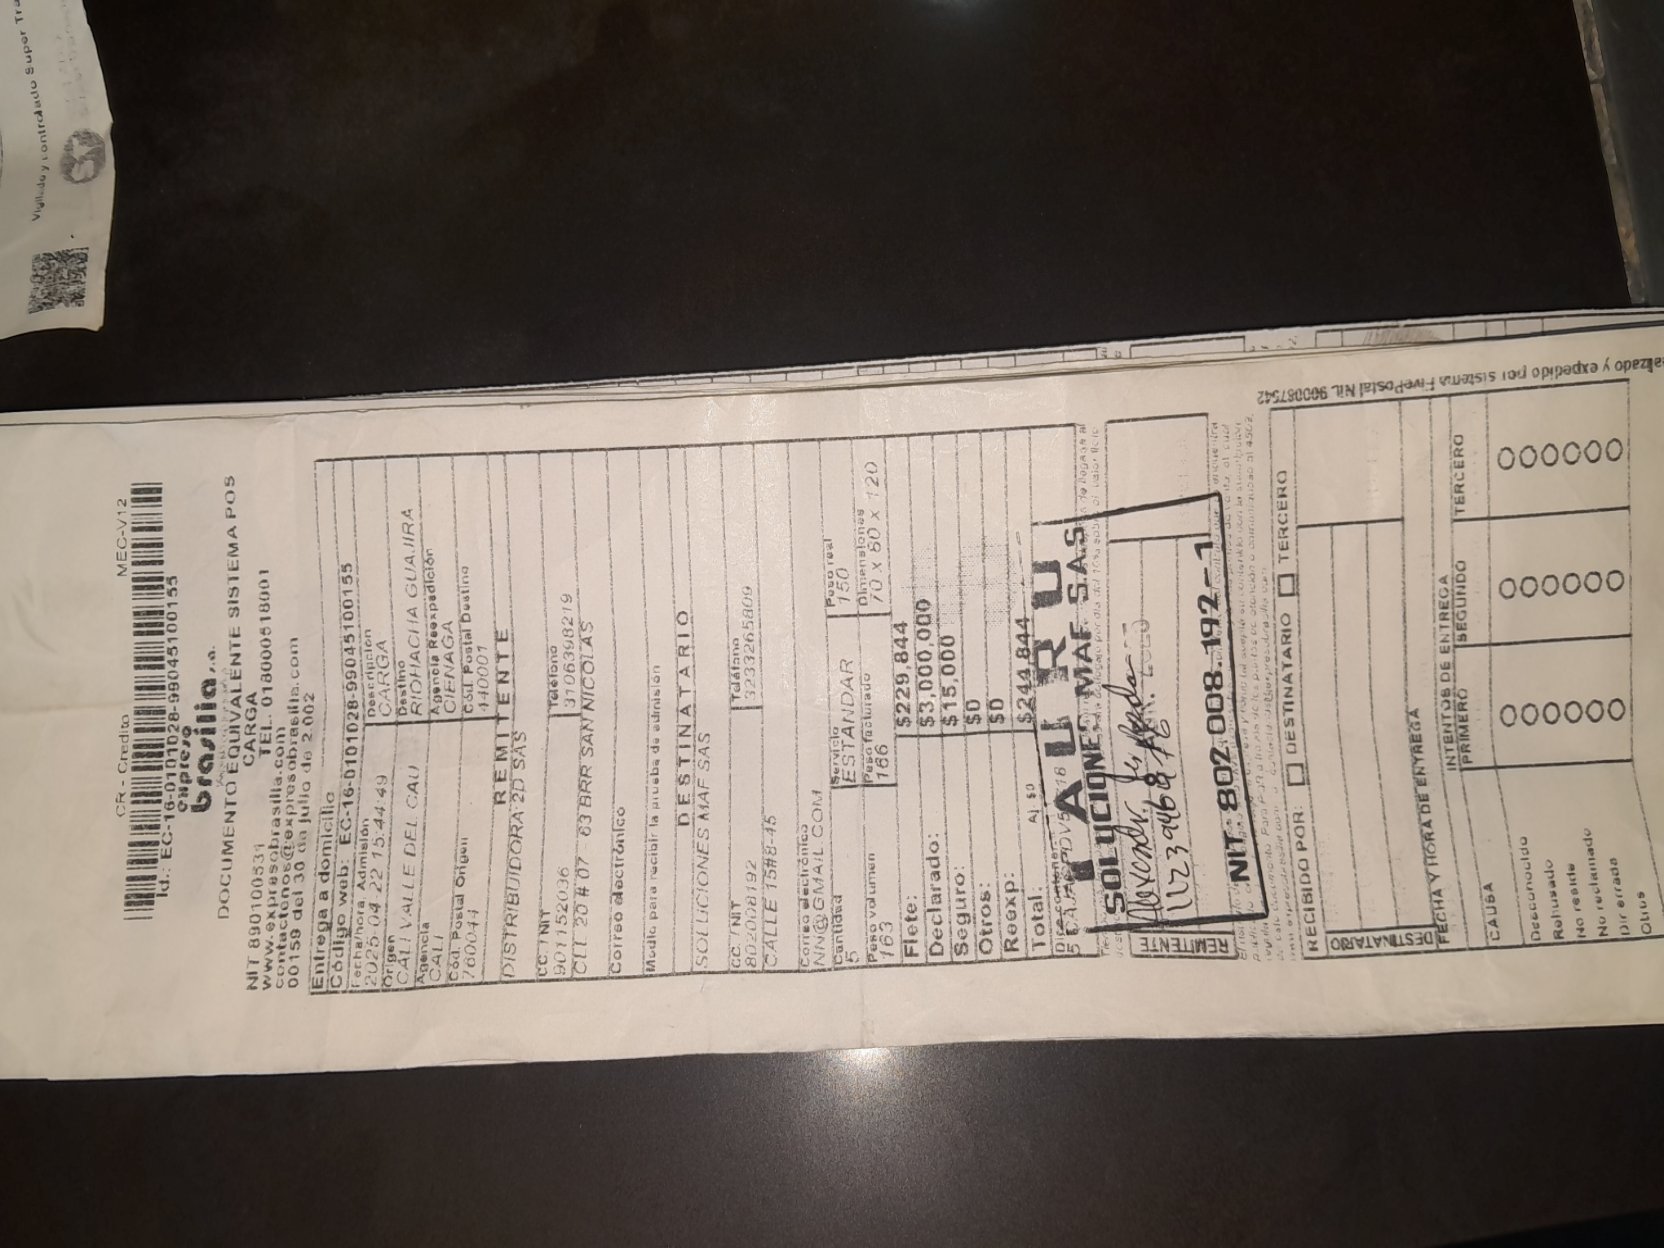 Vigilado y controlado Super Tra
CR - Credito MEC-V12
Id.: EC-16-0101028-99045100155
expreso
brasilia s.a.
DOCUMENTO EQUIVALENTE SISTEMA POS
CARGA
NIT 890100531 TEL.. 0180000518001
www.expresobrasilia.com
contactenos@expresobrasilia.com
00159 del 30 de julio de 2.002
Entrega a domicilio
Código web: EC-16-0101028-99045100155
Fecha/hora Admisión Descripción
2025-04-22 15:44:49 CARGA
Origen Destino
CALI VALLE DEL CAU RIOHACHA GUAJIRA
Agencia Agencia Reexpedición
CALI CIENAGA
Cód. Postal Origen Cód. Postal Destino
760044 440001
REMITENTE
DISTRIBUIDORA 2D SAS
CC. / NIT Teléfono
901152036 3106398219
CLL 20 # 07 - 63 BRR SAN NICOLAS
Correo electrónico
Medio para recibir la prueba de admisión
DESTINATARIO
SOLUCIONES MAF SAS
CC. / NIT Teléfono
802008192 3233265809
CALLE 15#8-45
Correo electrónico
NN@GMAIL.COM
Cantidad Servicio Peso real
5 ESTANDAR 150
Peso volumen Peso facturado Dimensiones
163 166 70 x 80 x 120
Flete: $229,844
Declarado: $3,000,000
Seguro: $15,000
Otros: $0
Reexp: $0
Total: $244,844
Aj. $0
TAURU
SOLUCIONES MAF S.A.S
1123994694
NIT. 802.008.192-1
REMITENTE
RECIBIDO POR: DESTINATARIO TERCERO
DESTINATARIO
FECHA Y HORA DE ENTREGA
INTENTOS DE ENTREGA
CAUSA PRIMERO SEGUNDO TERCERO
Desconocido
Rehusado
No reside
No reclamado
Dir errada
Otros
alizado y expedido por sistema FivePostal Nit. 900087542